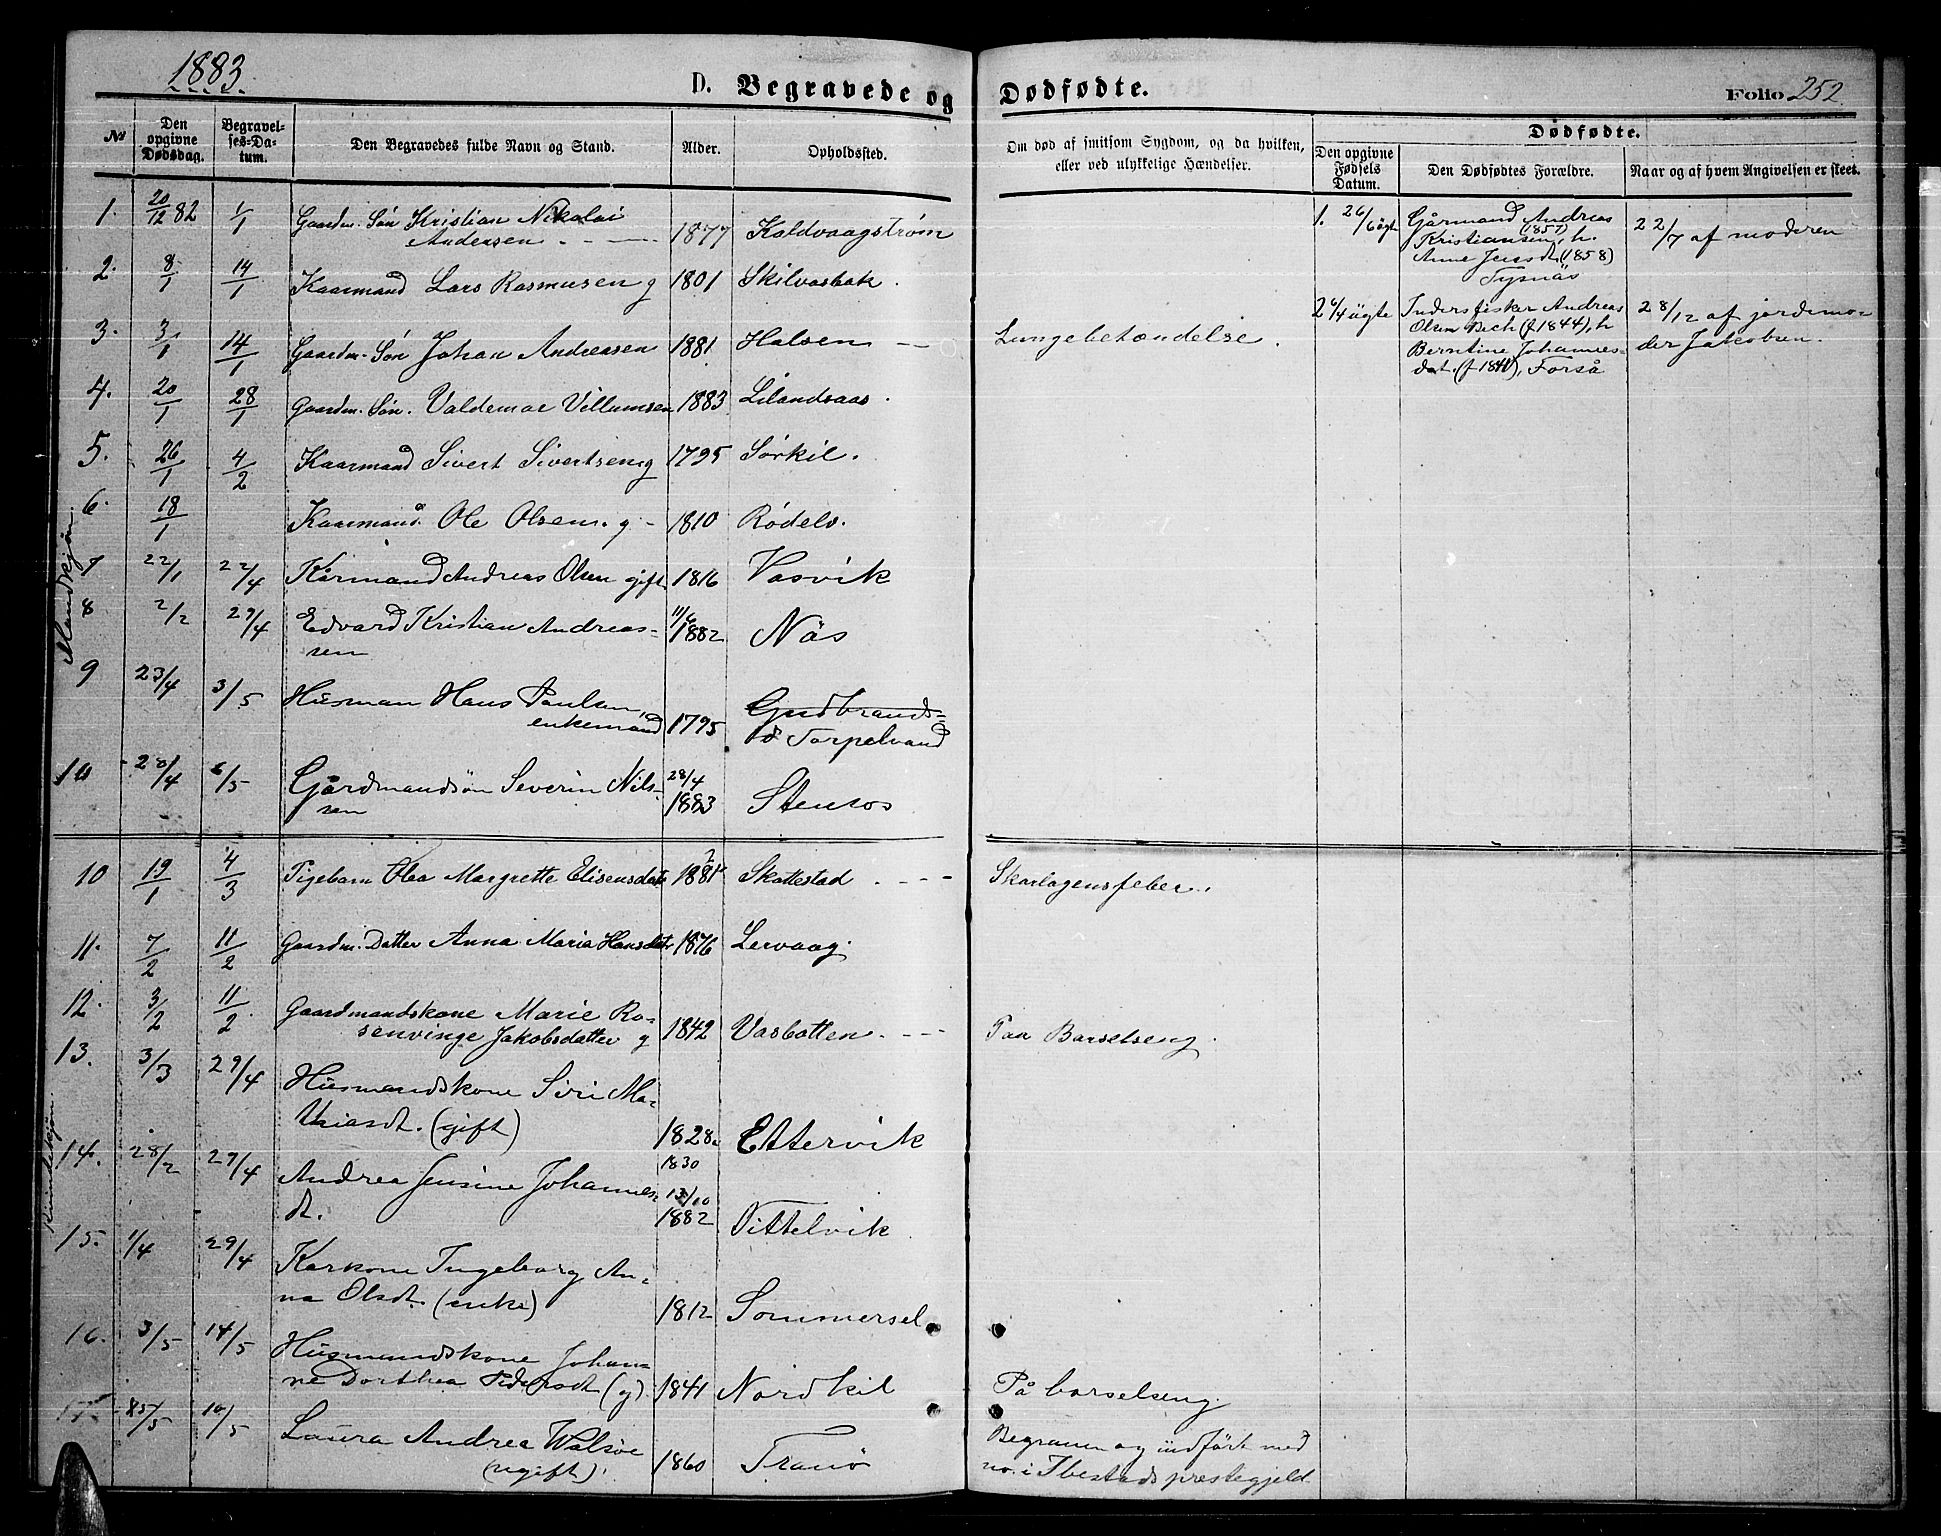 1883.
D. Begravede og Dødfødte.
Folio 252
No
Den opgivne Dødsdag.
Begravelses-Datum.
Den Begravedes fulde Navn og Stand.
Alder.
Opholdssted.
Om død af smitsom Sygdom, og da hvilken, eller ved ulykkelige Hændelser.
Dødfødte.
Den opgivne Fødsels Datum.
Den Dødfødtes Forældre.
Naar og af hvem Angivelsen er skeet.
Mandkjøn.
1. 20/12 82 1/1 Gaardm. Søn Kristian Nikolai
Andersen 1877 Kaldvaagstrøm
2. 8/1 14/1 Kaarmand Lars Rasmusen g 1801 Skilvasbak.
3. 3/1 14/1 Gaardm. Søn Johan Andreasen 1881 Halsen — Lungebetændelse.
4. 20/1 28/1 Gaardm. Søn. Valdemar Villumsen 1883 Lilandsaas.
5. 26/1 4/2 Kaarmand Sivert Sivertsen g 1795 Sørkil.
6. 18/1 Kaarmand. Ole Olsen. g - 1810 Rødelv.
7 22/1 22/4 Kårmand Andreas Olsen gift 1816 Vasvik
8 2/2 29/4 Edvard Kristian Andreas-
sen 11/6 1882 Näs
9 23/4 3/5 Husman Hans Paulsen,
enkemand 1795 Gudbrands=
Torpelvand
10 6/5 Gårdmandsön Severin Nils-
sen 28/4 1883 Stensos
1. 26/6 ägte Gårmand Andreas
Kristiansen (1857), h.
Anne Jensdt. (1858)
Tysnäs
22/7 af moderen
2 ägte Indersfisker Andreas
Olsen Bech (f 1844), h
Berntine Johannes-
dat. (f 1841), Forså
28/12 af jordemo-
der Jakobsen.
Kvindekjøn.
10 19/1 4/3 Pigebarn Olea Margrette Elisensdatr 1881 Skottestad Skarlagensfeber.
11. 7/2 11/2 Gaardm. Datter Anna Maria Hansdatr 1876 Lervaag.
12. 3/2 11/2 Gaardmandskone Marie Ro-
senvinge Jakobsdatter g 1842 Vasbotten. Paa Barselseng.
13. 3/3 29/4 Husmandskone Siri Ma-
thiasdt. (gift) 1828 1830 Ettervik
14. 28/2 29/4 Andrea Jensine Johannes-
dt. 13/10 1882 Vittelvik
15. 1/4 29/4 Karkone Ingeborg An-
na Olsdt. (enke) 1812 Sommersel
16. 3/5 14/5 Husmandskone Johan-
ne Dorthea Pedersdt (g). 1841 Nordkil På barselseng.
17. 10/5 Laura Andrea Walsöe
(ugift). 1860 Tranö Begraven og indført med
no. i Ibestads prestegjeld